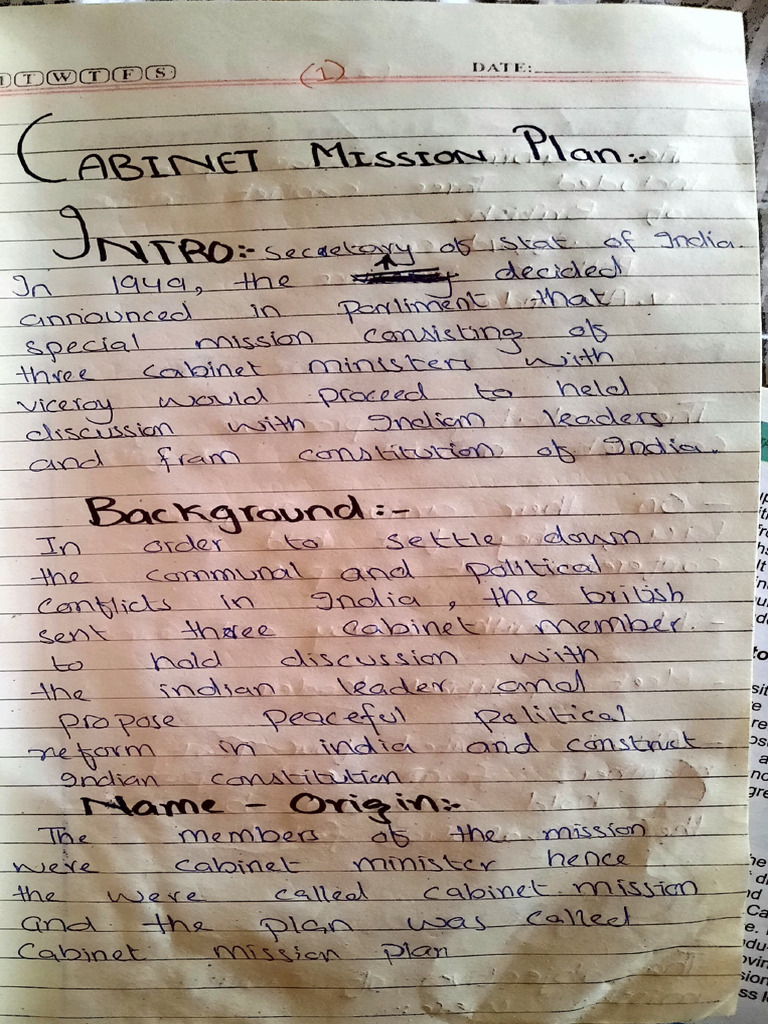 T W T F S
(1)
DATE:
CABINET MISSION Plan:-
INTRO:- Secretary of Stat of India.
In 1949, the decided
announced in Parliment that
special mission consisting of
three cabinet ministers with
viceroy would proceed to held
discussion with Indian leaders
and fram constitution of India.
Background:-
In order to settle down
the communal and political
conflicts in India, the british
sent three cabinet member.
to hold discussion with
the indian leader and
propose peaceful political
reform in india and construct
Indian constitution.
Name - Origin:-
The members of the mission
were cabinet minister hence
the were called cabinet mission
and the plan was called
Cabinet mission plan